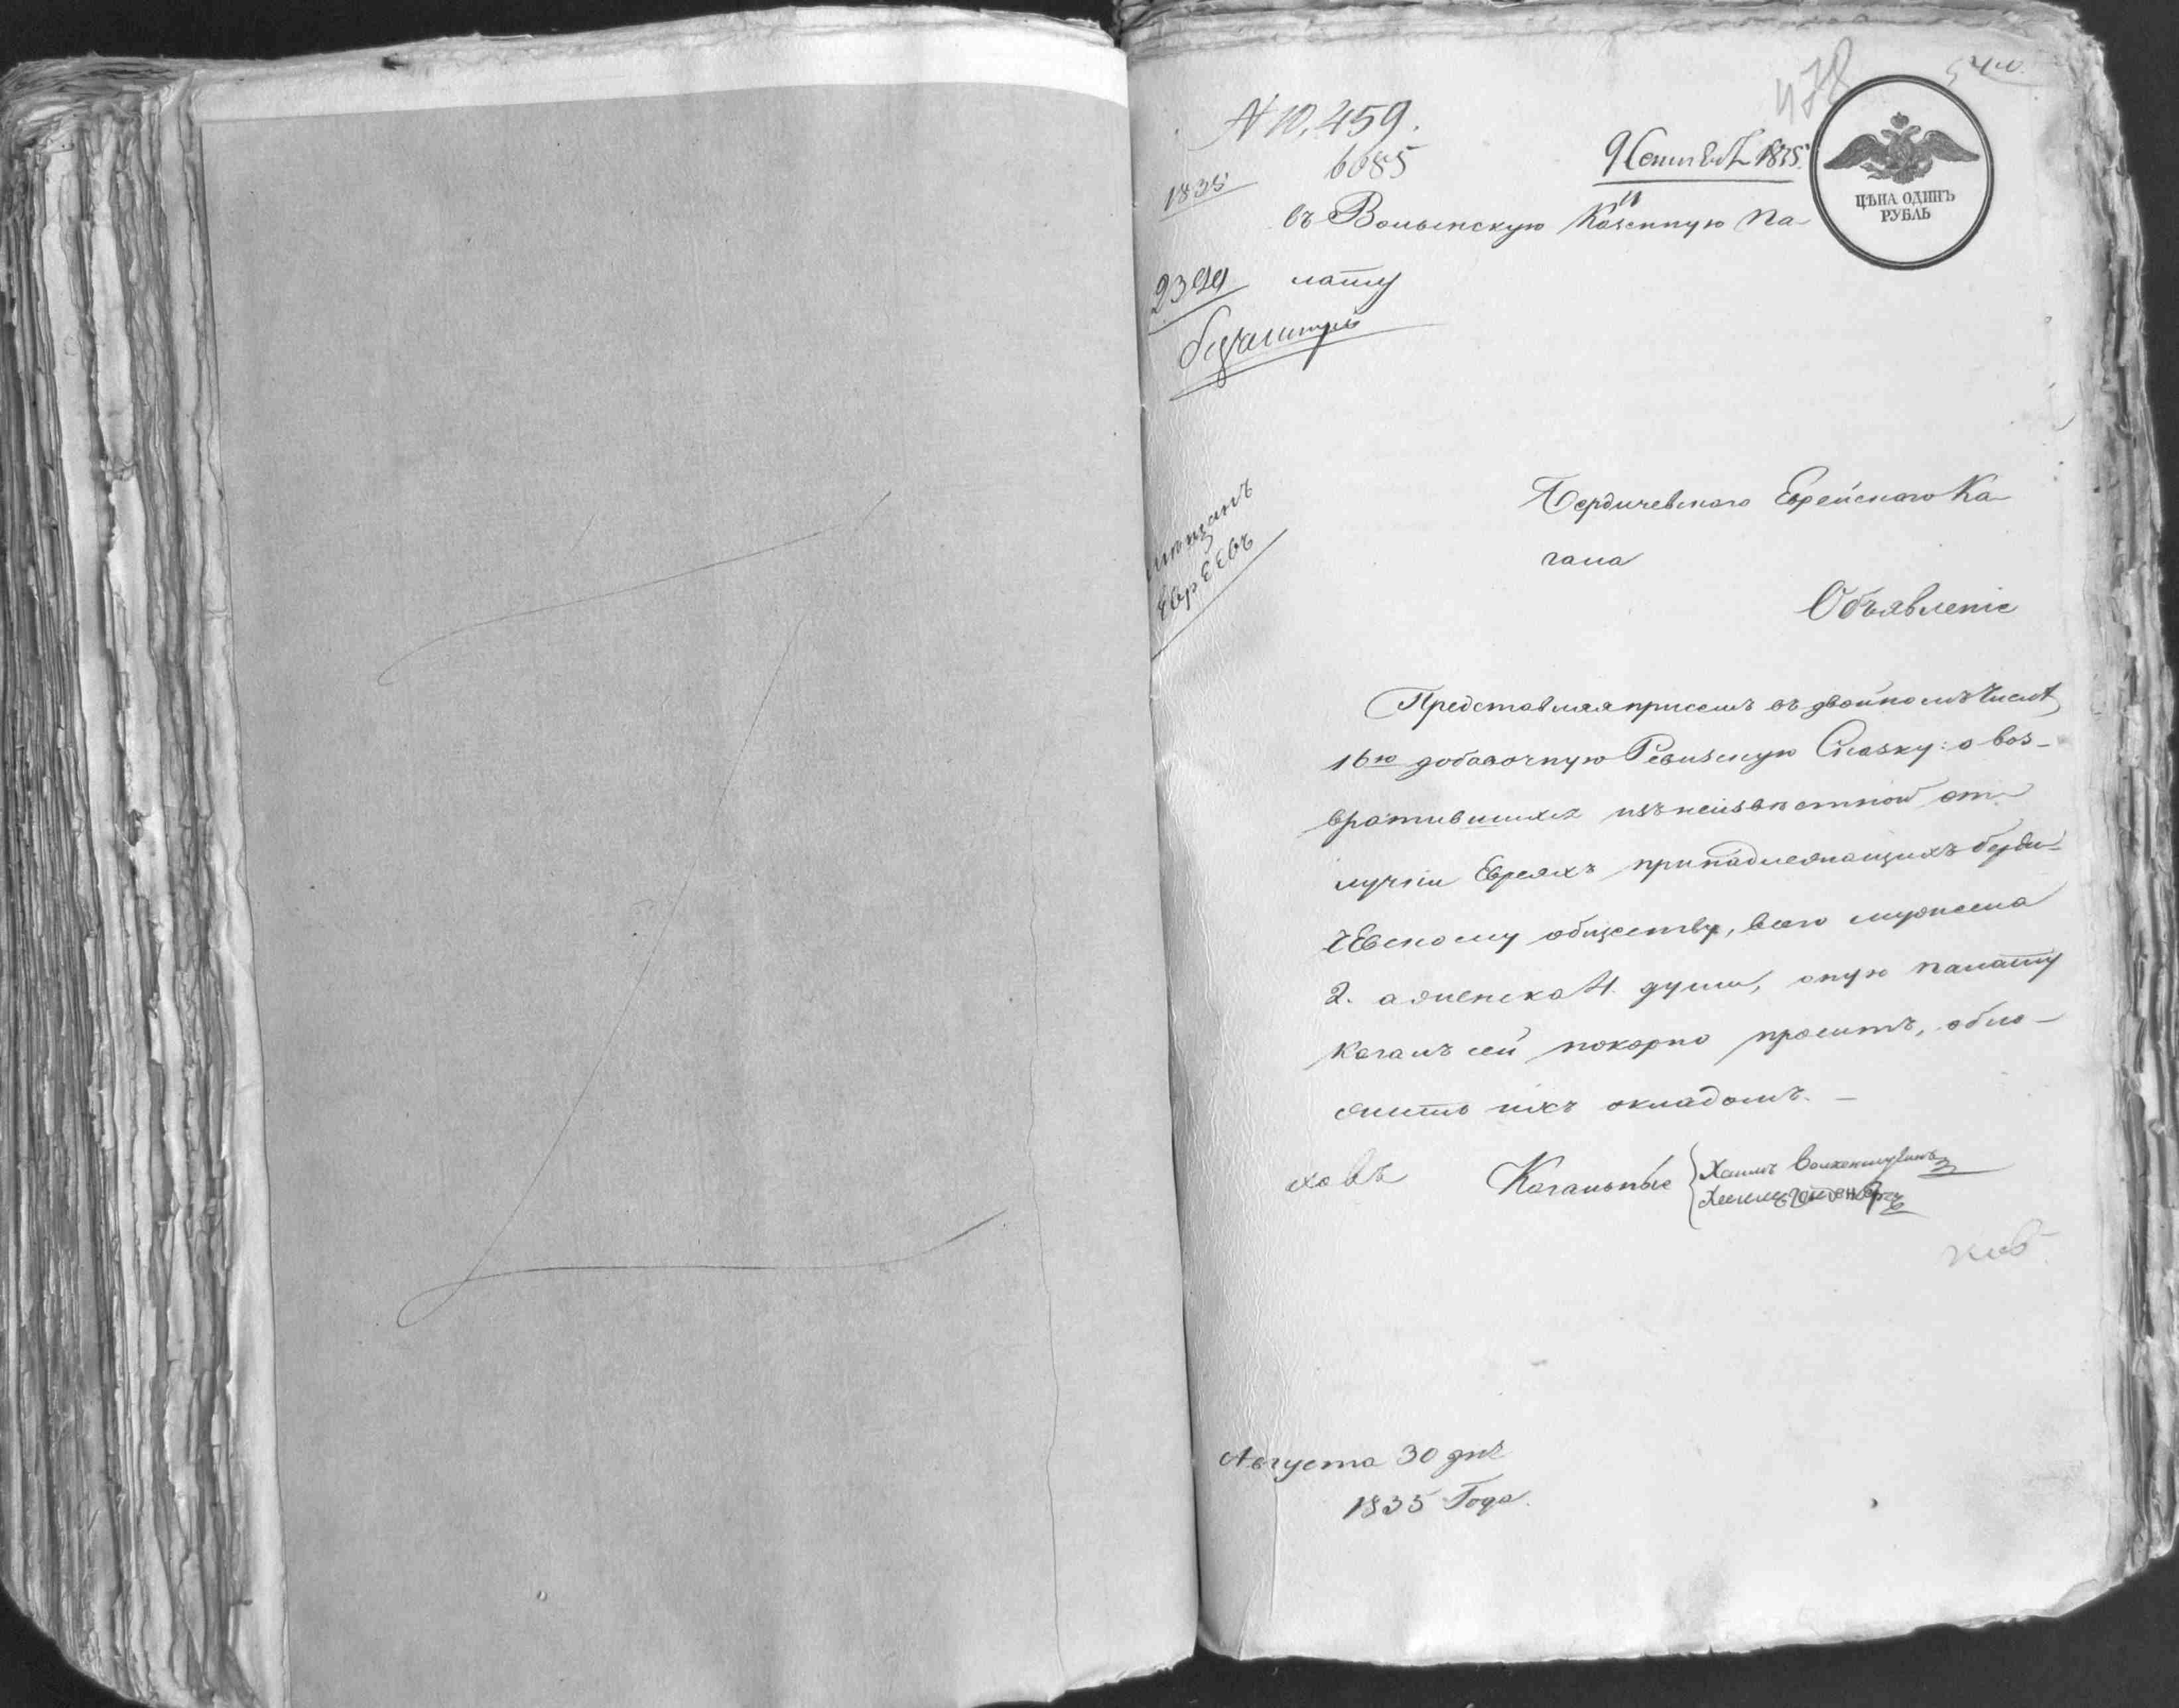 478
№ 10,459.
6085
9 Сентября 1835
1835
ЦѢНА ОДИНЪ
РУБЛЬ
въ Волынскую Казенную Па-
лату
мѣщанъ
Евреевъ
Бердичевского Еврейского Ка-
гала
Объявленіе
Представляя присемъ въ двойномъ числѣ
16ю добавочную Ревизскую Сказку: о воз-
вратившихся изъ неизвѣстной от-
лучки Евреяхъ принадлежащихъ Берди-
чевскому обществу, всего мужеска
2. а женска 4. души, оную палату
Кагалъ сей покорно проситъ, обло-
жить ихъ окладомъ. —
Кагальные
Хаимъ
Августа 30 дня
1835 Года.